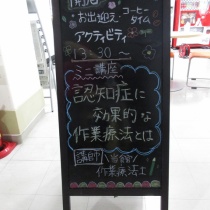 お出迎え・コーヒー
タイム
アクティビティ
13:30～
ミニ講座
認知症に
効果的な
作業療法とは
講師 当館
作業療法士